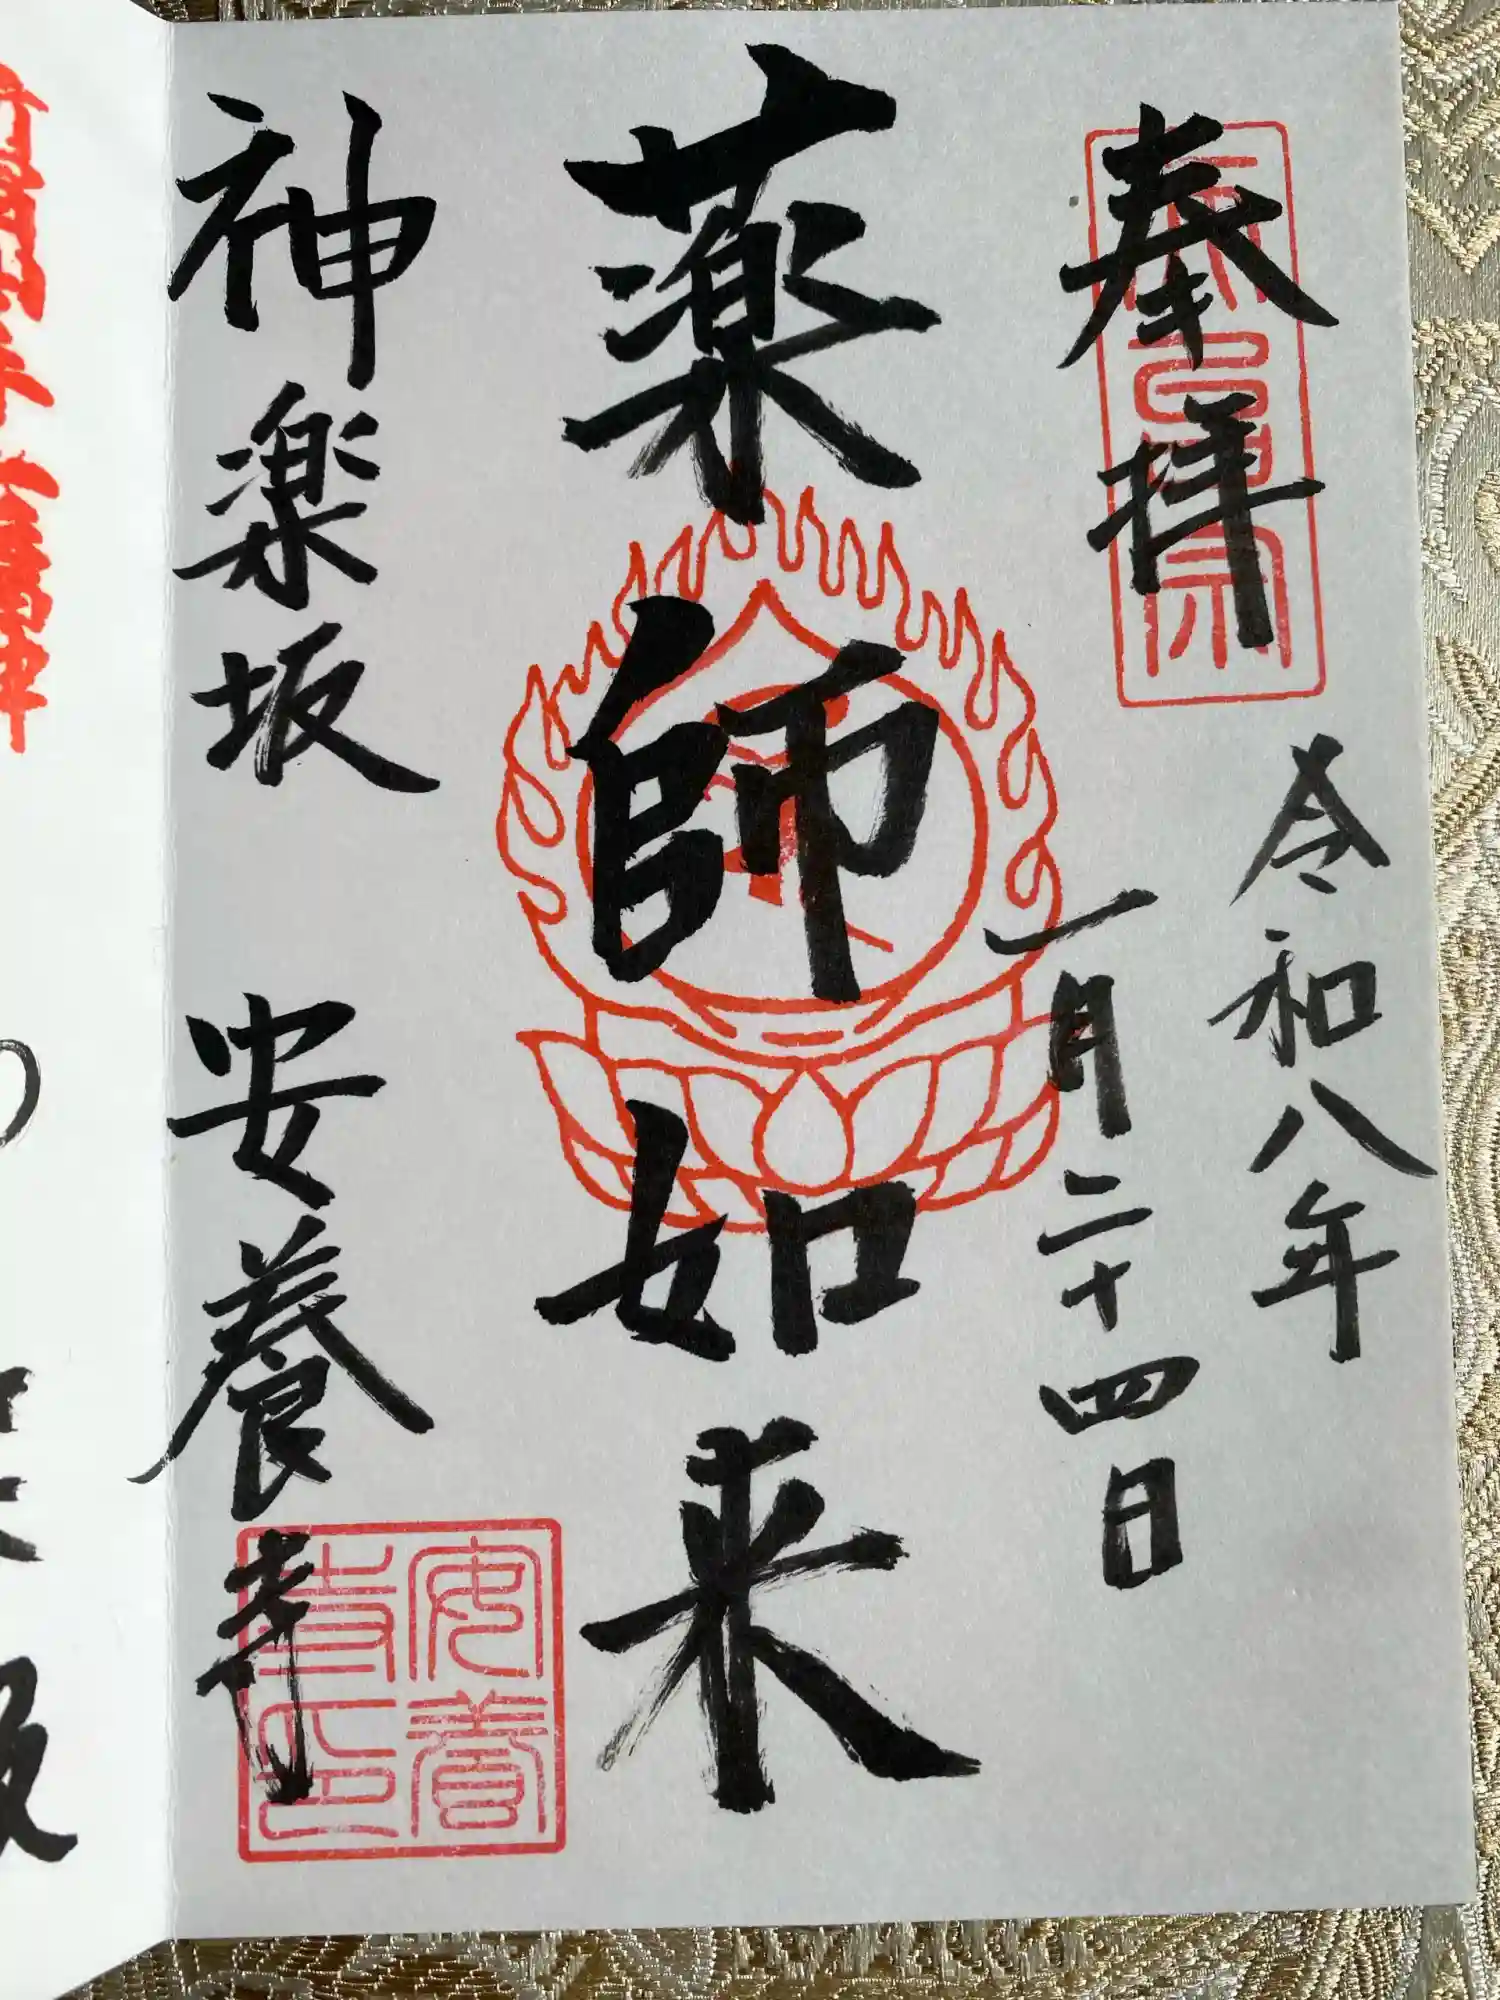 奉拝
令和八年
一月二十四日
薬師如来
神楽坂 安養寺
安養
寺印